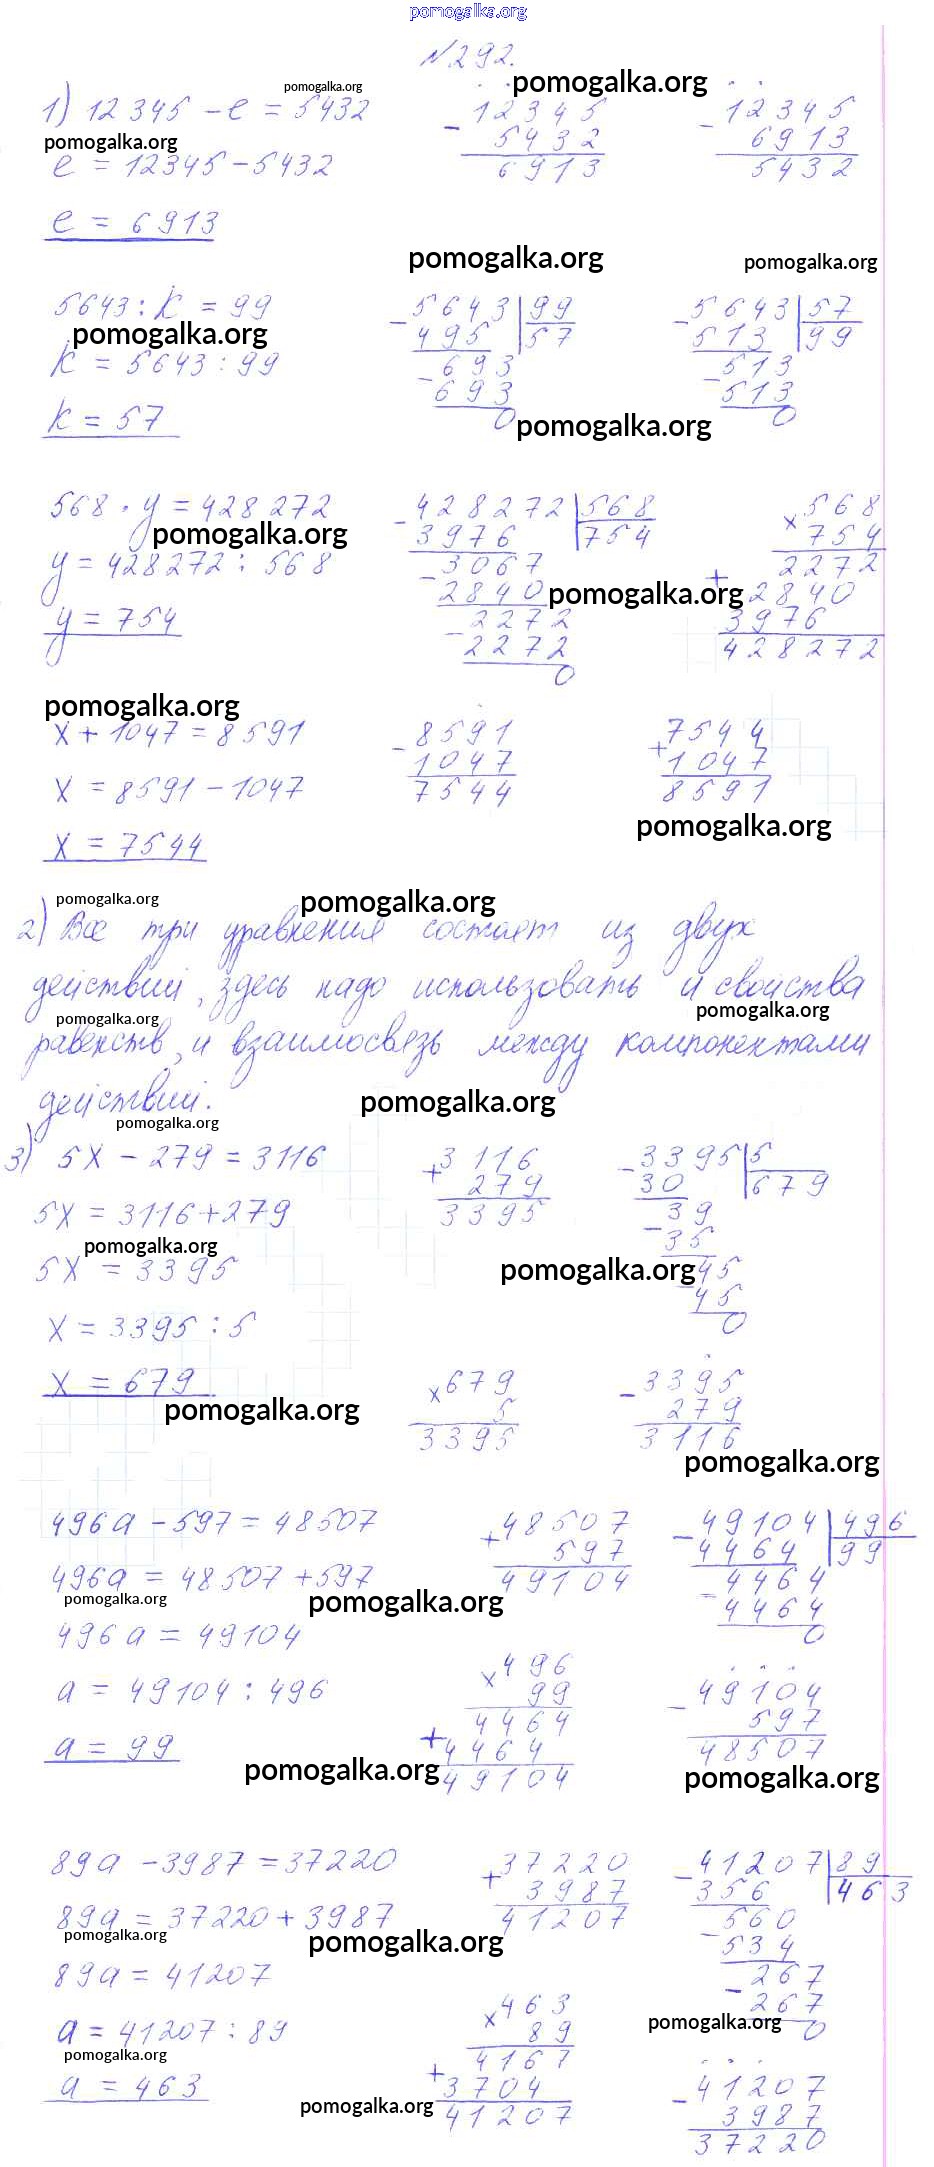 pomogalka.org
N292.
pomogalka.org
pomogalka.org
1) 12345 - e = 5432
pomogalka.org
e = 12345 - 5432
e = 6913
-12345
5432
6913
-12345
6913
5432
pomogalka.org
pomogalka.org
5643 : k = 99
pomogalka.org
k = 5643 : 99
k = 57
-5643 | 99
495 57
-693
693
0
-5643 | 57
513 99
-513
513
0
pomogalka.org
568 · y = 428272
pomogalka.org
y = 428272 : 568
y = 754
-428272 | 568
3976 754
-3067
2840
-2272
2272
0
pomogalka.org
×568
754
2272
+2840
3976
428272
pomogalka.org
x + 1047 = 8591
x = 8591 - 1047
x = 7544
-8591
1047
7544
+7544
1047
8591
pomogalka.org
pomogalka.org
pomogalka.org
2) Все три уравнения состоят из двух
действий, здесь надо использовать и свойства
pomogalka.org
pomogalka.org
равенств, и взаимосвязь между компонентами
действий.
pomogalka.org
pomogalka.org
3) 5x - 279 = 3116
5x = 3116 + 279
pomogalka.org
5x = 3395
x = 3395 : 5
x = 679
pomogalka.org
+3116
279
3395
-3395 | 5
30 679
39
-35
45
45
0
pomogalka.org
×679
5
3395
-3395
279
3116
pomogalka.org
496a - 597 = 48507
496a = 48507 + 597
pomogalka.org
pomogalka.org
496a = 49104
a = 49104 : 496
a = 99
+48507
597
49104
-49104 | 496
4464 99
-4464
4464
0
×496
99
4464
+4464
49104
-49104
597
48507
pomogalka.org
pomogalka.org
89a - 3987 = 37220
89a = 37220 + 3987
pomogalka.org
pomogalka.org
89a = 41207
a = 41207 : 89
pomogalka.org
a = 463
+37220
3987
41207
-41207 | 89
356 463
-560
534
-267
267
0
pomogalka.org
×463
89
4167
+3704
41207
pomogalka.org
-41207
3987
37220